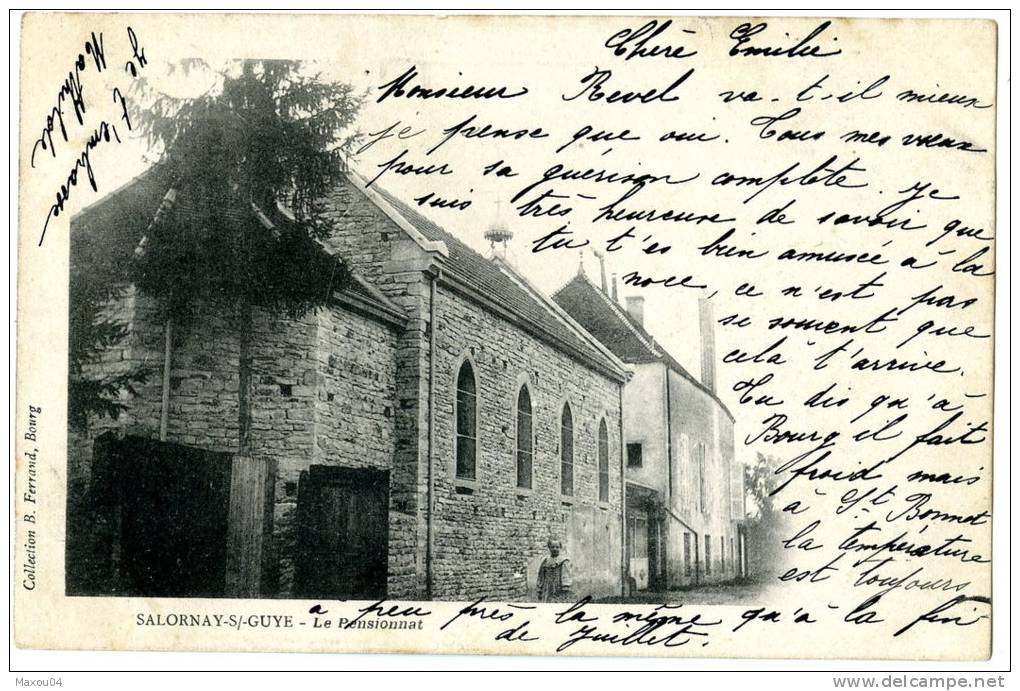 Chère Emilie
Monsieur Revel va-t-il mieux
je pense que oui. Tous mes vœux
pour sa guérison complète. Je
suis très heureuse de savoir que
tu t'es bien amusée à la
noce, ce n'est pas
si souvent que
celà t'arrive.
Tu dis qu'à
Bourg il fait
froid mais
à St. Bonnet
la température
est toujours
à peu près la même qu'à la fin
de Juillet.
Je t'embrasse
Mathilde
Collection B. Ferrand, Bourg
SALORNAY-S/-GUYE - Le Pensionnat
Maxou04
delcampe.net